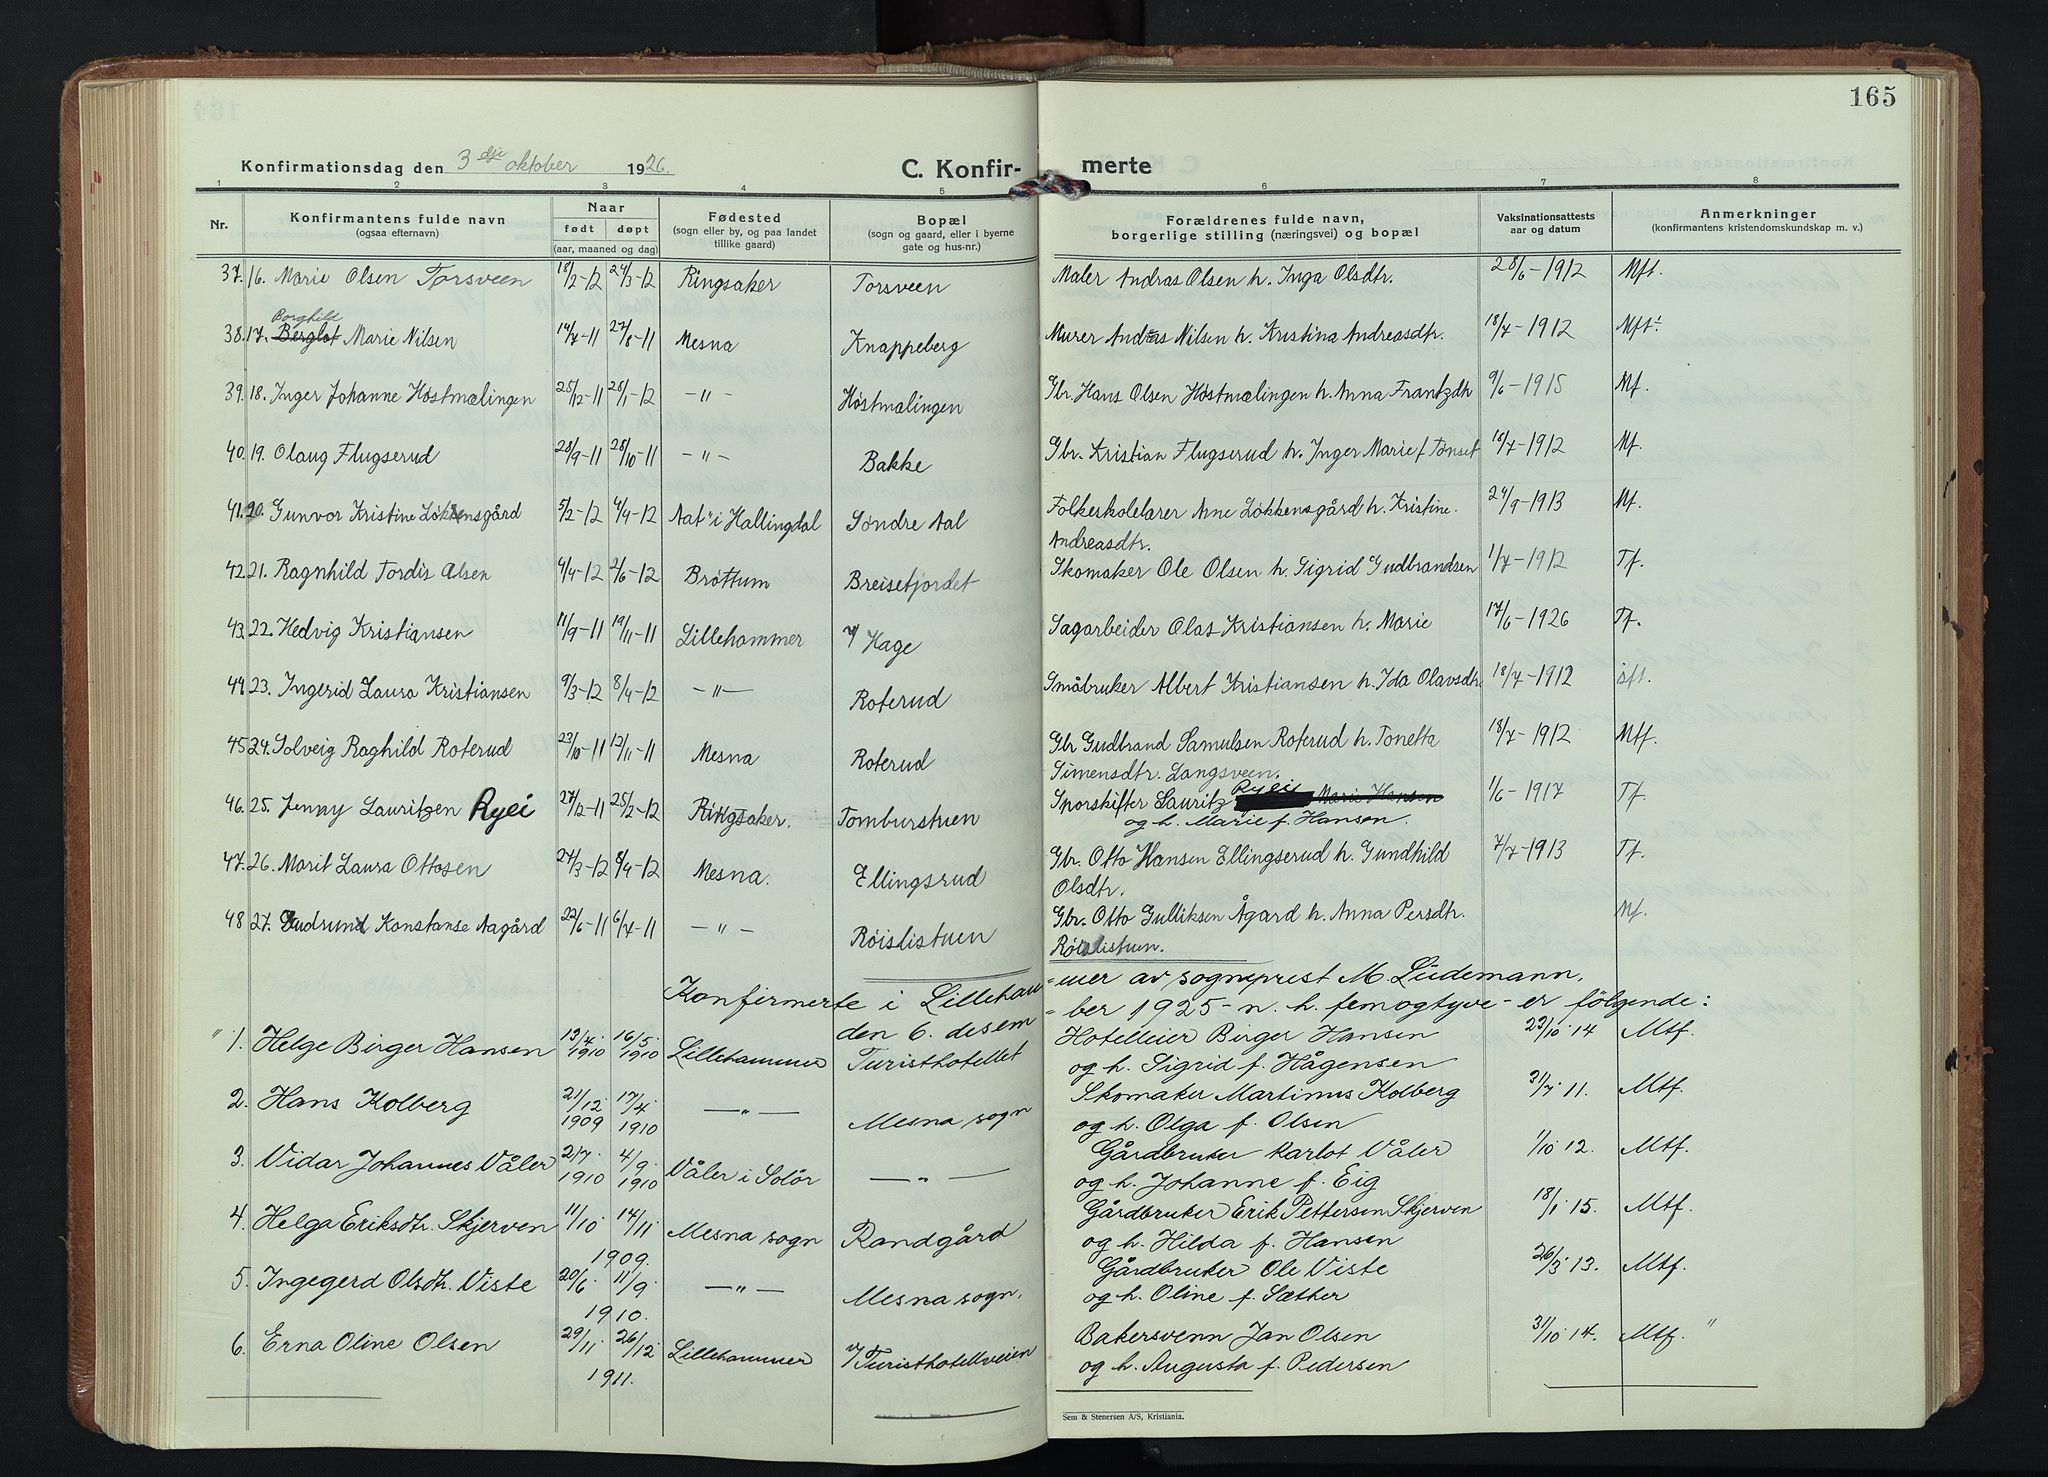 165
Konfirmationsdag den 3 dje oktober 1926. C. Konfir- merte
1 2 3 4 5 6 7 8
Nr. Konfirmantens fulde navn (ogsaa efternavn) Naar født døpt (aar, maaned og dag) Fødested (sogn eller by, og paa landet tillike gaard) Bopæl (sogn og gaard, eller i byerne gate og hus-nr.) Forældrenes fulde navn, borgerlige stilling (næringsvei) og bopæl Vaksinationsattests aar og datum Anmerkninger (konfirmantens kristendomskundskap m. v.)
37. 16. Marie Olsen Torsveen 18/2-12 24/3-12 Ringsaker Torsveen Maler Andras Olsen h. Inga Olsdtr. 28/6-1912 Mft.
Borghild
38. 17. Berglot Marie Nilsen 14/7-11 27/8-11 Mesna Knappeberg Murer Andras Nilsen h. Kristina Andreasdtr. 18/7-1912 Mft.
39. 18. Inger Johanne Høstmælingen 25/12-11 28/1-12 -"- Høstmælingen Gbr. Hans Olsen Høstmælingen h. Anna Frantzdtr 9/6-1915 Mf.
40. 19. Olaug Flugserud 28/9-11 28/10-11 -"- Bakke Gbr. Kristian Flugserud h. Inger Marie f Tønset 18/7-1912 Mf.
41. 20. Gunvor Kristine Løkkensgård 5/2-12 4/4-12 Aal i Hallingdal Søndre Aal Folkeskolelærer Arne Løkkensgård h. Kristine 24/9-1913 Mf.
Andreasdtr.
42. 21. Ragnhild Tordis Olsen 4/4-12 2/6-12 Brøttum Breisetjordet Skomaker Ole Olsen h. Sigrid Gudbrandsen 1/7-1912 Tf.
43. 22. Hedvig Kristiansen 11/9-11 19/11-11 Lillehammer v/ Hage Sagarbeider Olas Kristiansen h. Marie 17/6-1926 Tf.
44. 23. Ingerid Laura Kristiansen 9/3-12 8/4-12 -"- Roterud Småbruker Albert Kristiansen h. Ida Olavsdtr. 18/7-1912
45. 24. Solveig Raghild Roterud 23/10-11 13/11-11 Mesna Roterud Gbr Gudbrand Samulsen Roterud h. Tonetta 18/7-1912 Mtf.
Simensdtr. Langsveen.
46. 25. Jenny Lauritzen Ryei 27/12-11 25/2-12 Ringsaker. Tomburstuen Sporskifter Lauritz Ryei Marie Hansen 1/6-1917 Tf.
og h. Marie f. Hansen.
47. 26. Marit Laura Ottosen 24/3-12 8/4-12 Mesna. Ellingsrud Gbr. Otto Hansen Ellingserud h. Gundhild 7/7-1913 Tf.
Olsdtr.
48 27. Gudrund Konstanse Aagård 22/6-11 6/7-11 -"- Røislistuen Gbr. Otto Gulliksen Ågard h. Anna Persdtr. Mf.
Røislistuen.
Konfirmerte i Lillehammer av sogneprest M. Lüdemann,
den 6. desember 1925 - n. h. femogtyve - er følgende:
" 1. Helge Birger Hansen 13/4. 1910 16/5. 1910 Lillehammer Turisthotellet Hotelleier Birger Hansen 23/10. 14 Mtf.
og h. Sigrid f. Hågensen
2. Hans Kolberg 21/12. 1909 17/4. 1910 -"- Mesna sogn Skomaker Martinus Kolberg 31/7. 11. Mtf.
og h. Olga f. Olsen
3. Vidar Johannes Våler 2/7. 1910 4/9. 1910 Våler i Solör -"- Gårdbruker Karlot Våler 1/10 12. Mtf.
og h. Johanne f. Eig
4. Helga Eriksdtr. Skjerven 11/10. 14/11. 1909. Mesna sogn Randgård Gårdbruker Erik Pettersen Skjerven 18/1. 15. Mtf.
og h. Hilda f. Hansen
5. Ingegerd Olsdtr. Viste 20/6. 11/9. 1910. -"- Mesna sogn. Gårdbruker Ole Viste 26/3. 13. Mtf.
og h. Oline f. Sæther
6. Erna Oline Olsen 29/11. 26/12. 1911. Lillehammer v/Turisthotellveien Bakersvenn Jan Olsen 31/10. 14. Mtf. "
og h. Augusta f. Pedersen
Sem & Stenersen A/S, Kristiania.